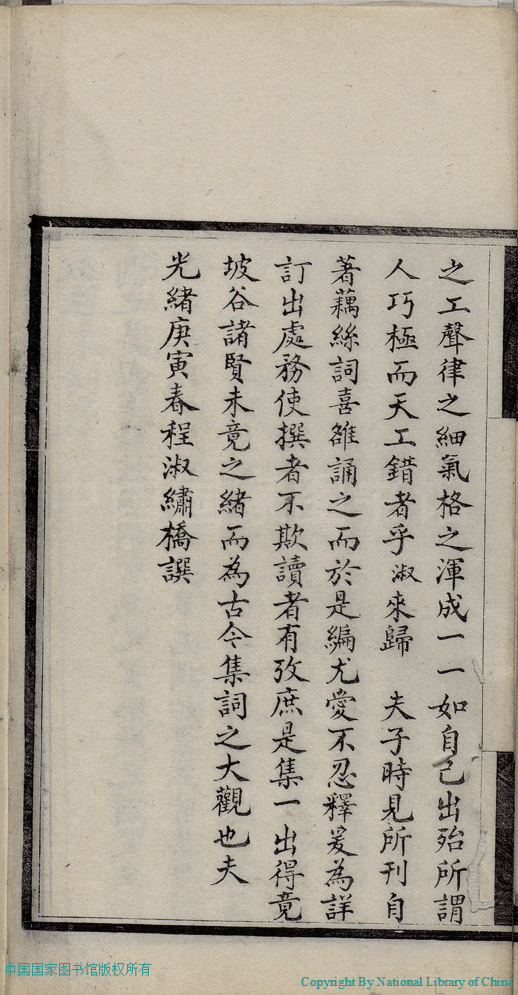 之工聲律之細氣格之渾成一一如自己出殆所謂
人巧極而天工錯者乎淑來歸　夫子時見所刊自
著藕絲詞喜雒誦之而於是編尤愛不忍釋爰為詳
訂出處務使撰者不欺讀者有攷庶是集一出得竟
坡谷諸賢未竟之緒而為古今集詞之大觀也夫
光緒庚寅春程淑繡橋譔
中国国家图书馆版权所有
Copyright By National Library of China